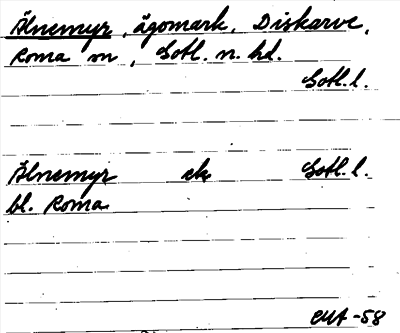 Älnemyr, ägomark, Diskarve,
Roma sn, Gotl. n. hd.
Gotl. l.
Älnemyr ek Gotl. l.
bl. Roma
-58